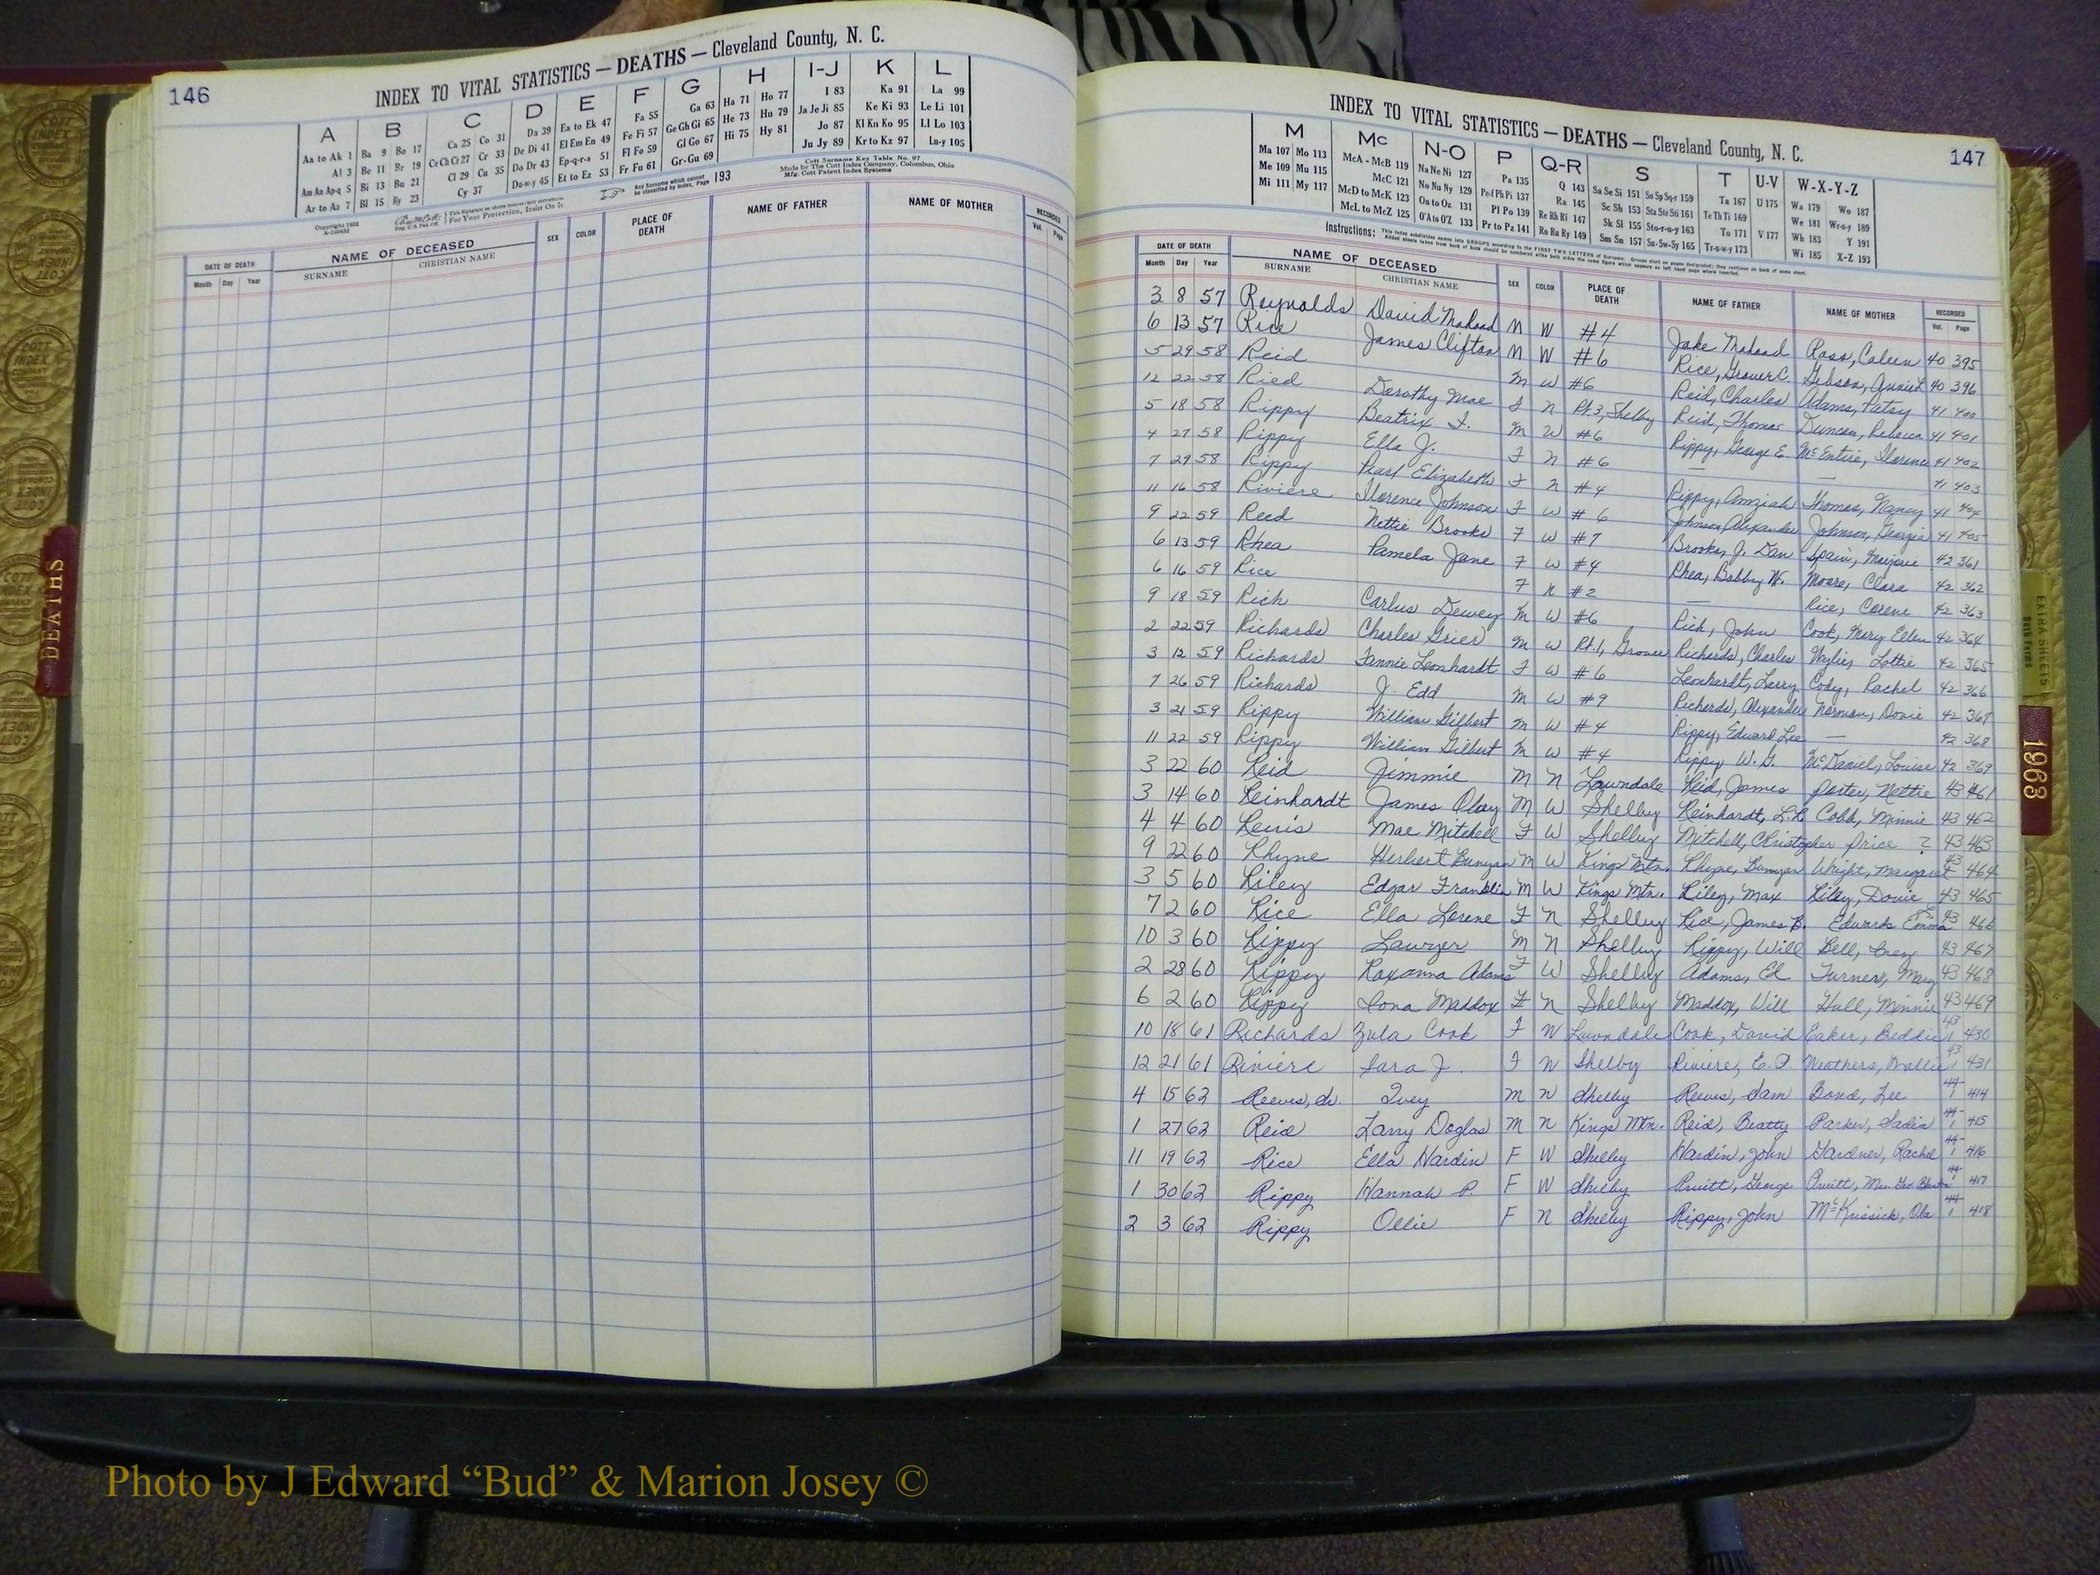 146
INDEX TO VITAL STATISTICS — DEATHS — Cleveland County, N. C.
A B C D E F G H I-J K L
Aa to Ak 1 Ba 9 Bo 17 Ca 25 Co 31 Da 39 Ea to Ek 47 Fa 55 Ga 63 Ha 71 Ho 77 I 83 Ka 91 La 99
Al 3 Be 11 Br 19 Ce Ch Ci 27 Cr 33 De Di 41 El Em En 49 Fe Fi 57 Ge Gh Gi 65 He 73 Hu 79 Ja Je Ji 85 Ke Ki 93 Le Li 101
Am An Ap-q 5 Bi 13 Bu 21 Cl 29 Cu 35 Do Dr 43 Ep-q-r-s 51 Fl Fo 59 Gl Go 67 Hi 75 Hy 81 Jo 87 Kl Kn Ko 95 Ll Lo 103
Ar to Az 7 Bl 15 By 23 Cy 37 Du-w-y 45 Et to Ez 53 Fr Fu 61 Gr-Gu 69 Ju Jy 89 Kr to Kz 97 Lu-y 105
Any Surname which cannot be classified by Index, Page 193
Cott Surname Key Table No. 97
Made by The Cott Index Company, Columbus, Ohio
Mfg. Cott Patent Index Systems
DATE OF DEATH NAME OF DECEASED SEX COLOR PLACE OF DEATH NAME OF FATHER NAME OF MOTHER RECORDED
Month Day Year SURNAME CHRISTIAN NAME Vol. Page
INDEX TO VITAL STATISTICS — DEATHS — Cleveland County, N. C.
147
M Mc N-O P Q-R S T U-V W-X-Y-Z
Ma 107 Mo 113 McA - McB 119 Na Ne Ni 127 Pa 135 Q 143 Sa Se Si 151 So Sp Sq-r 159 Ta 167 U 175 Wa 179 Wo 187
Me 109 Mu 115 McC 121 No Nu Ny 129 Pe-f Ph Pi 137 Ra 145 Sc Sh 153 Sta Ste Sti 161 Te Th Ti 169 We 181 Wr-u-y 189
Mi 111 My 117 McD to McK 123 Oa to Oz 131 Pl Po 139 Re Rh Ri 147 Sk Sl 155 Sto-r-u-y 163 To 171 V 177 Wh 183 Y 191
McL to McZ 125 O'A to O'Z 133 Pr to Pz 141 Ro Ru Ry 149 Sm Sn 157 Su-Sw-Sy 165 Tr-u-w-y 173 Wi 185 X-Z 193
DATE OF DEATH NAME OF DECEASED SEX COLOR PLACE OF DEATH NAME OF FATHER NAME OF MOTHER RECORDED
Month Day Year SURNAME CHRISTIAN NAME Vol. Page
3 8 57 Reynolds David Mahaad M W #4 Jake Mahaad Ross, Caleen 40 395
6 13 57 Rice James Clifton M W #6 Rice, Grover C. Gibson, Annie L 40 396
5 29 58 Reid M W #6 Reid, Charles Adams, Patsy 41 400
12 22 58 Ried Dorothy Mae F N Rt. 3, Shelby Reid, Thomas Duncan, Rebecca 41 401
5 18 58 Rippy Beatrix F. M W #6 Rippy, George E. McEntire, Florence 41 402
4 27 58 Rippy Ella J. F N #6 — — 41 403
7 29 58 Rippy Pearl Elizabeth F N #4 Rippy, Amziah Thomas, Nancy 41 404
11 16 58 Riviere Florence Johnson F W #6 Johnson, Alexander Johnson, Georgia 41 405
9 22 59 Reed Nettie Brooks F W #7 Brooks, J. Dan Spain, Marjorie 42 361
6 13 59 Rhea Pamela Jane F W #4 Rhea, Bobby W. Moore, Clara 42 362
6 16 59 Rice F N #2 — Rice, Corene 42 363
9 18 59 Rich Carlus Dewey M W #6 Rich, John Cook, Mary Ellen 42 364
2 22 59 Richards Charles Grier M W Rt. 1, Grover Richards, Charles Wylie, Lottie 42 365
3 12 59 Richards Fannie Leonhardt F W #6 Leonhardt, Larry Cody, Rachel 42 366
7 26 59 Richards J. Edd M W #9 Richards, Alexander Norman, Dovie 42 367
3 21 59 Rippy William Gilbert M W #4 Rippy, Edward Lee — 42 368
11 22 59 Rippy William Gilbert M W #4 Rippy, W. G. McDaniel, Louise 42 369
3 22 60 Reid Jimmie M N Lawndale Reid, James Porter, Nettie 43 461
3 14 60 Reinhardt James Olay M W Shelby Reinhardt, L.R. Cobb, Minnie 43 462
4 4 60 Mae Mitchell F W Shelby Mitchell, Christopher Price ? 43 463
9 22 60 Rhyne Herbert Bunyan M W Kings Mtn. Rhyne, Bunyan Wright, Margaret 43 464
3 5 60 Riley Edgar Franklin M W Kings Mtn. Riley, Max Riley, Dovie 43 465
7 2 60 Rice Ella Lorene F N Shelby Rice, James B. Edwards Emma 43 466
10 3 60 Rippy Lawyer M N Shelby Rippy, Will Bell, 43 467
2 28 60 Rippy Roxanna Adams F W Shelby Adams, Ed Turner, Mary 43 468
6 2 60 Rippy Iona Maddox F N Shelby Maddox, Will Hall, Minnie 43 469
10 18 61 Richards Zula Cook F W Lawndale Cook, David Eaker, Biddie 43 430
12 21 61 Riviere Sara J. F W Shelby Riviere, E. F Weathers, Mollie 43 431
4 15 62 Reeves, Sr. Ivey M N Shelby Reeves, Sam Bond, Lee 44 414
1 27 62 Reid Larry Doglas M N Kings Mtn. Reid, Beatty Parker, Sadie 44 415
11 19 62 Rice Ella Hardin F W Shelby Hardin, John Gardner, Rachel 44 416
1 30 62 Rippy Hannah P. F W Shelby Pruitt, George Pruitt, Mrs. 44 417
2 3 62 Rippy Ollie F N Shelby Rippy, John McKissick, Ola 44 418
DEATHS
1963
EXTRA SHEETS
Photo by J Edward “Bud” & Marion Josey ©